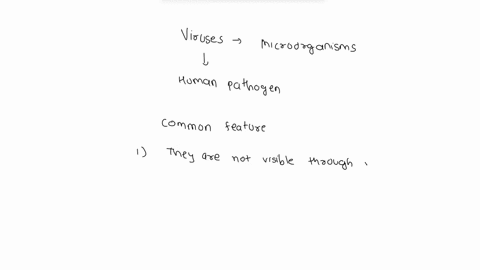 Viruses → Microorganisms
↓
Human pathogen
Common feature
1) They are not visible through